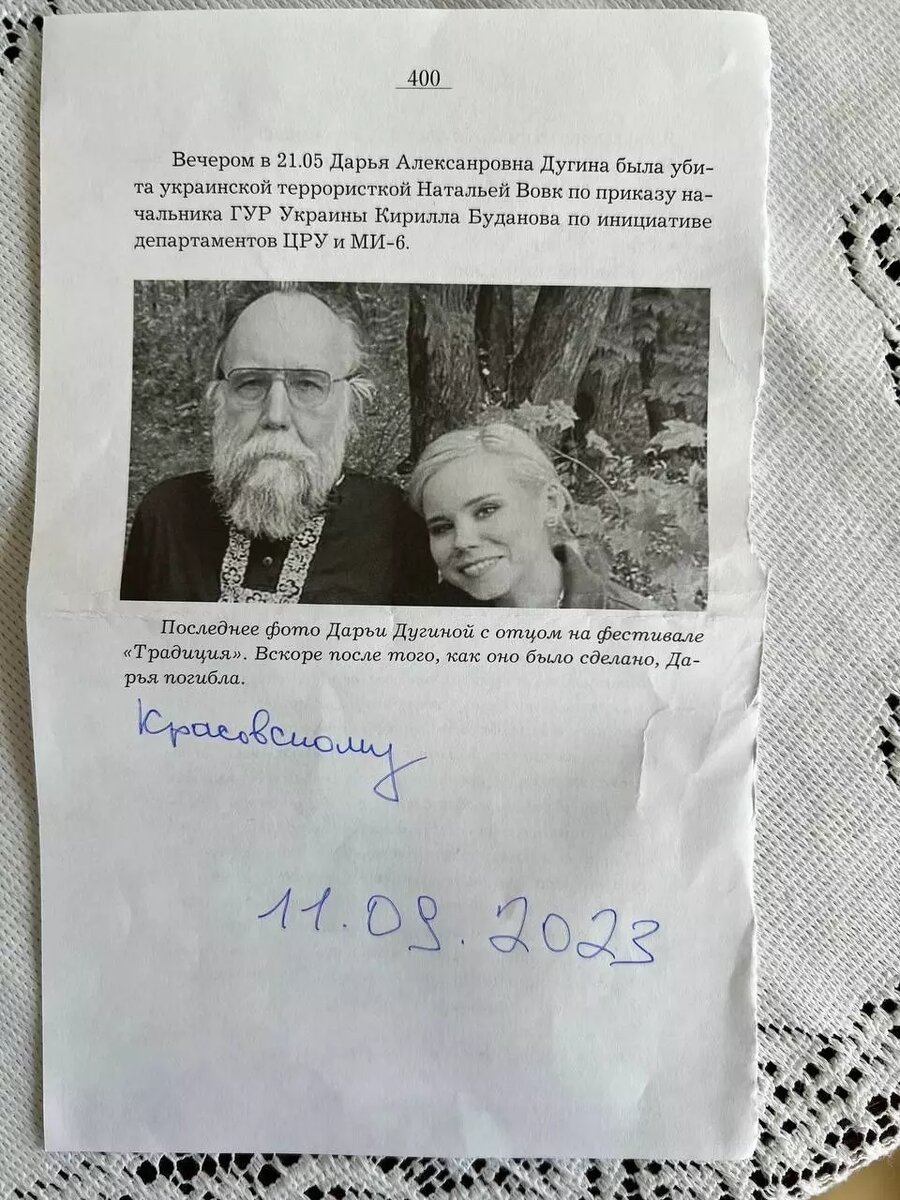 400
Вечером в 21.05 Дарья Алексанровна Дугина была уби-
та украинской террористкой Натальей Вовк по приказу на-
чальника ГУР Украины Кирилла Буданова по инициативе
департаментов ЦРУ и МИ-6.
Последнее фото Дарьи Дугиной с отцом на фестивале
«Традиция». Вскоре после того, как оно было сделано, Да-
рья погибла.
Красовскому
11.09.2023